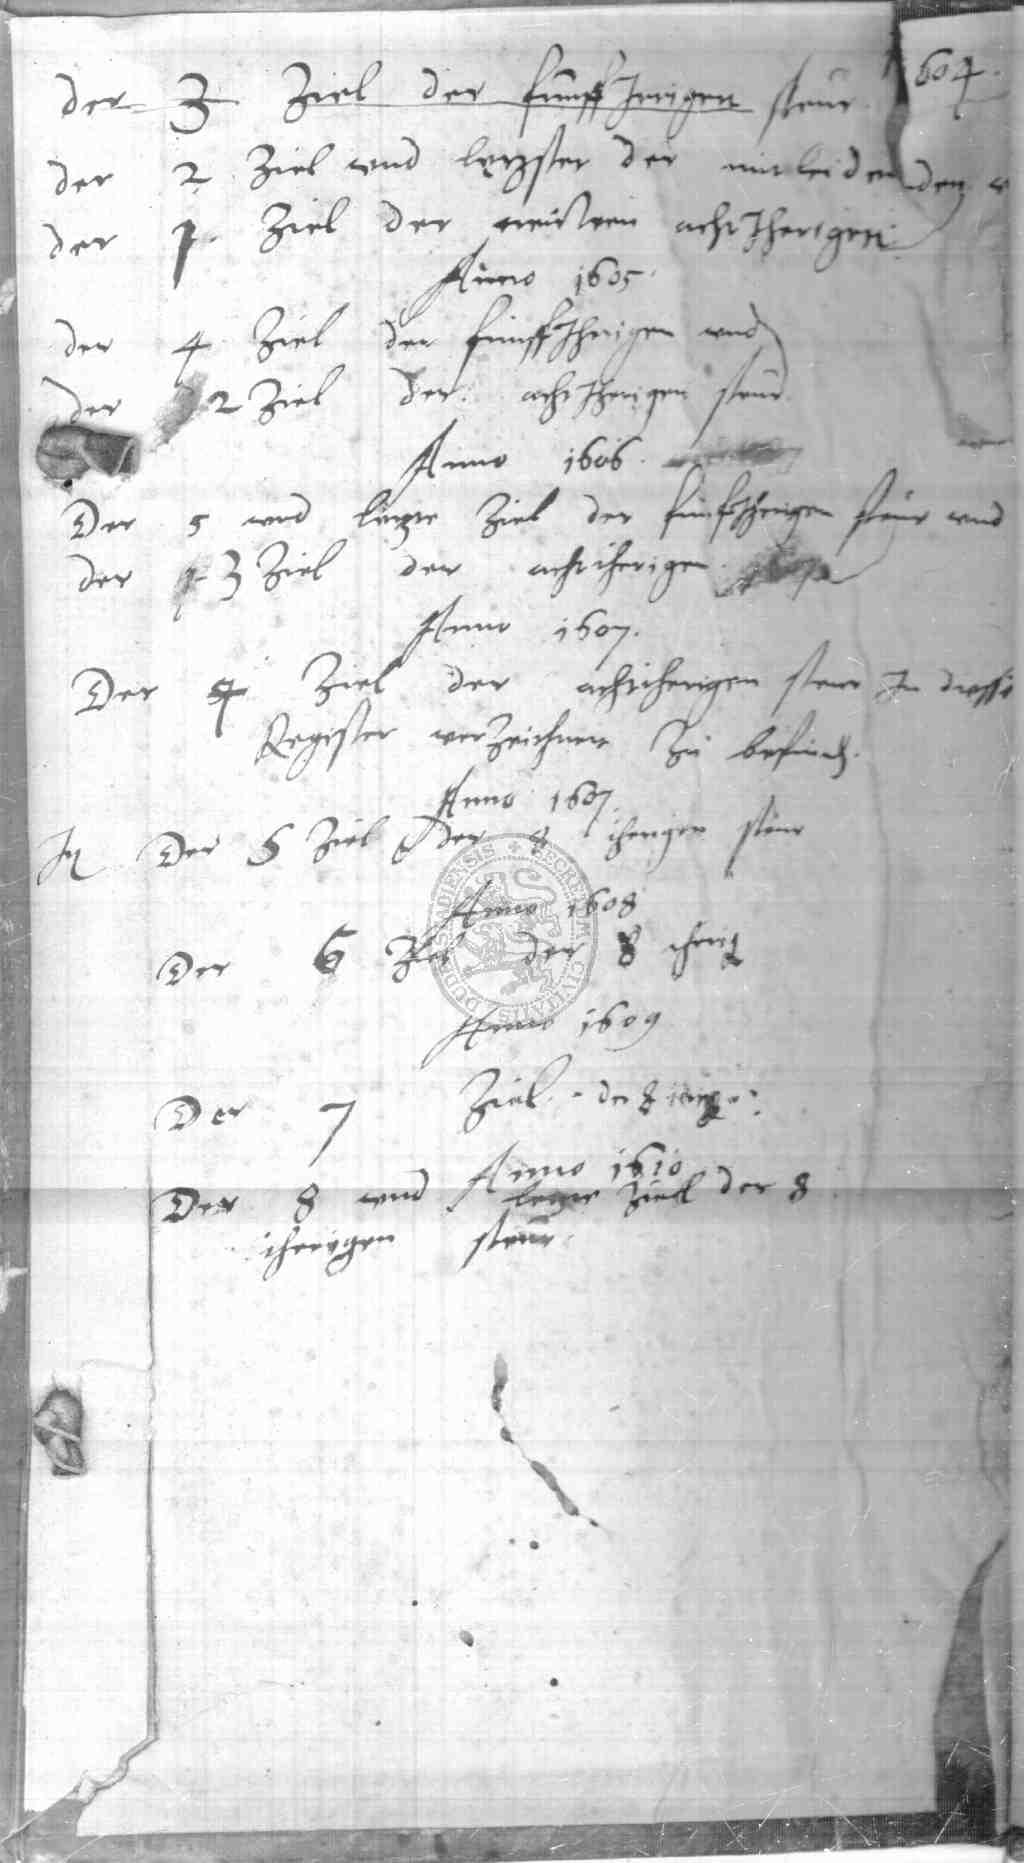 der 3 Ziel der fünff Jerigen steur 1604.
der 2 Ziel und letzster der mitleidenden
der 1. Ziel der neüwen acht Jherigen
Anno 1605.
der 4 Ziel der fünff Jherigen und
der 2 Ziel der acht Jherigen steur
Anno 1606.
Der 5 und letzte Ziel der fünff Jherigen steur und
der 3 Ziel der achtiherigen
Anno 1607.
Der 4 Ziel der achtiherigen steur In
Register verzeichnet Zu
Anno 1607.
Der 5 Ziel der 8 iherigen steur
Anno 1608
Der 6 Ziel der 8 iherig
Anno 1609
Der 7 Ziel der 8
Anno 1610
Der 8 und letzte Ziell der 8
iherigen steur.